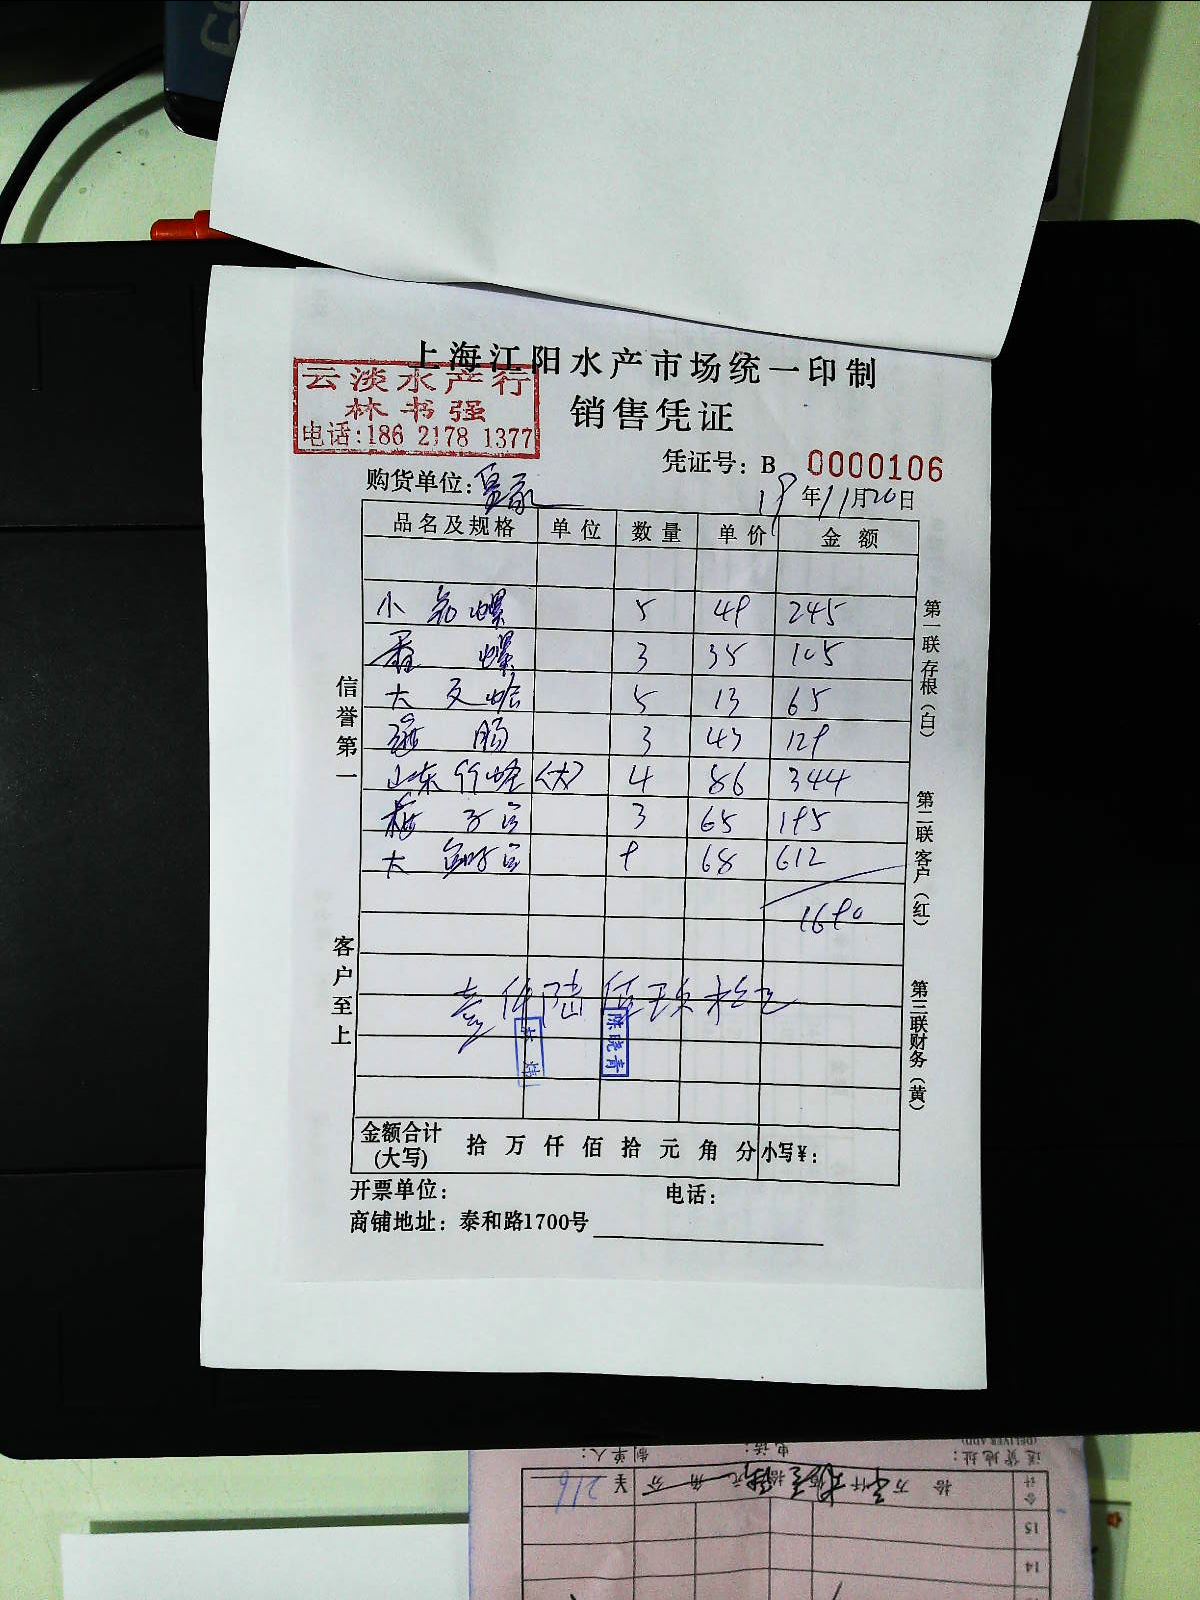 上海江阳水产市场统一印制
云淡水产行
林书强
电话:186 2178 1377
销售凭证
凭证号: B 0000106
购货单位:
19年11月20日
品名及规格 单位 数量 单价 金额
小 螺 5 49 245
螺 3 35 105
大 5 13 65
肠 3 43 129
山东竹蛏 (大) 4 86 344
3 65 195
大 9 68 612
1690
壹仟陆佰玖拾元
陈晓青
金额合计(大写) 拾 万 仟 佰 拾 元 角 分 小写¥:
开票单位: 电话:
商铺地址: 泰和路1700号
信誉第一 客户至上
第一联存根(白) 第二联客户(红) 第三联财务(黄)
送货地址: 电话: 制单人:
(DELIVER ADD)
合计 拾 万 仟 佰 拾 元 角 分 ¥ 216
15
14